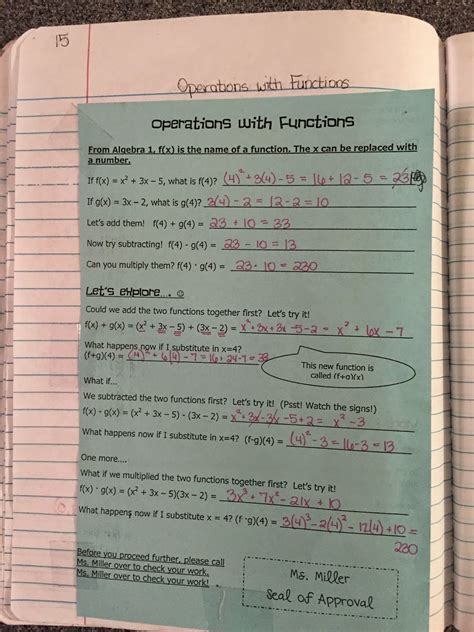 15
Operations with Functions
Operations with Functions
From Algebra 1, f(x) is the name of a function. The x can be replaced with
a number.
If f(x) = x² + 3x – 5, what is f(4)? (4)² + 3(4) - 5 = 16 + 12 - 5 = 23
If g(x) = 3x – 2, what is g(4)? 3(4) - 2 = 12 - 2 = 10
Let's add them! f(4) + g(4) = 23 + 10 = 33
Now try subtracting! f(4) - g(4) = 23 - 10 = 13
Can you multiply them? f(4) · g(4) = 23 · 10 = 230
Let's explore.... ☺
Could we add the two functions together first? Let's try it!
f(x) + g(x) = (x² + 3x – 5) + (3x – 2) = x² + 3x + 3x - 5 - 2 = x² + 6x - 7
What happens now if I substitute in x=4?
(f+g)(4) = (4)² + 6(4) - 7 = 16 + 24 - 7 = 33
This new function is
called (f+g)(x)
What if...
We subtracted the two functions first? Let's try it! (Psst! Watch the signs!)
f(x) - g(x) = (x² + 3x – 5) - (3x – 2) = x² + 3x - 3x - 5 + 2 = x² - 3
What happens now if I substitute in x=4? (f-g)(4) = (4)² - 3 = 16 - 3 = 13
One more....
What if we multiplied the two functions together first? Let's try it!
f(x) · g(x) = (x² + 3x – 5)(3x – 2) = 3x³ + 7x² - 21x + 10
What happens now if I substitute x = 4? (f ·g)(4) = 3(4)³ - 2(4)² - 17(4) + 10 =
230
Before you proceed further, please call
Ms. Miller over to check your work.
Ms. Miller over to check your work!
Ms. Miller
Seal of Approval